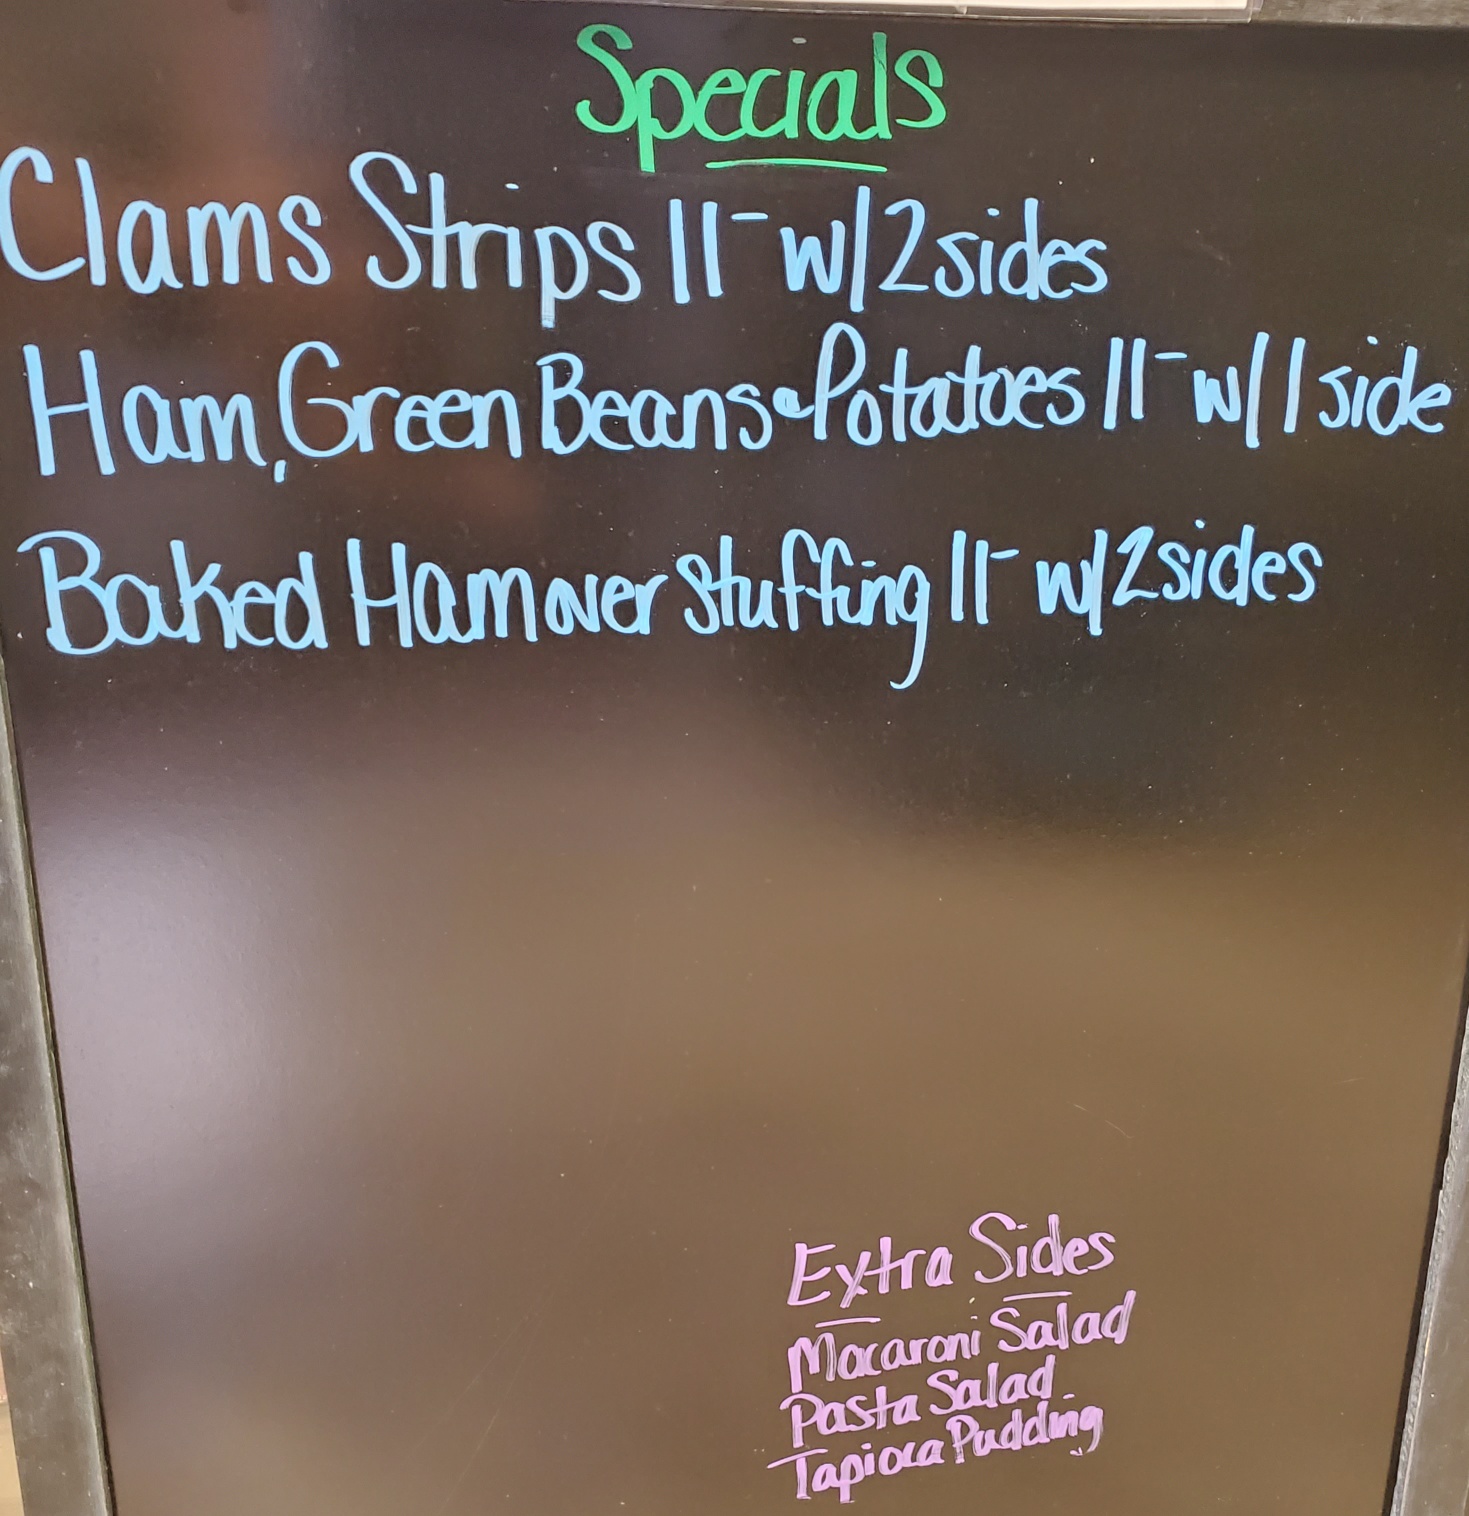 Specials
Clams Strips 11- w/2 sides
Ham, Green Beans & Potatoes 11- w/1 side
Baked Ham over Stuffing 11- w/2 sides
Extra Sides
Macaroni Salad
Pasta Salad
Tapioca Pudding